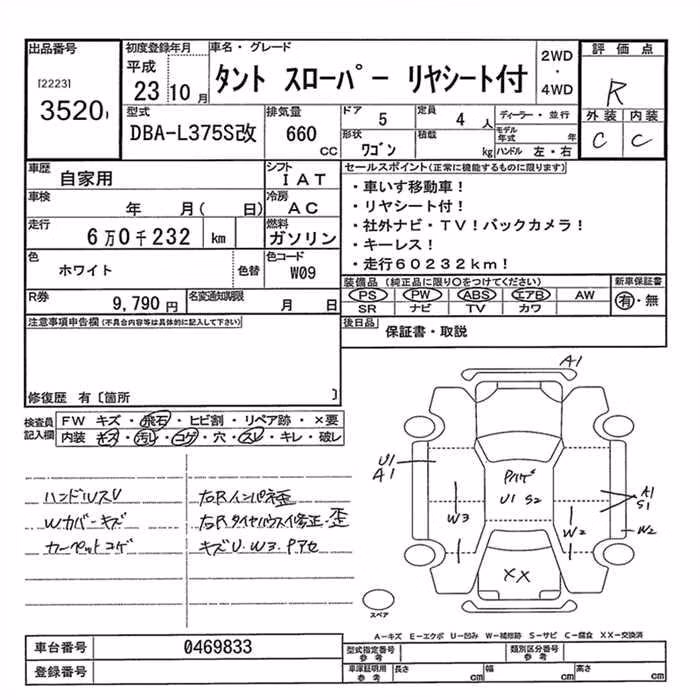 出品番号
[2223]
3520
初度登録年月
平成
23 10 月
車名・グレード
タント スローパー リヤシート付
2WD
・
4WD
評価点
R
外装 内装
C C
型式
DBA-L375S改
排気量
660
cc
ドア 5
定員 4 人
ディーラー・並行
形状 ワゴン
積載 kg
モデル年式 年
ハンドル 左・右
車歴
自家用
シフト
IAT
セールスポイント(正常に機能するものに限ります)
・車いす移動車!
・リヤシート付!
・社外ナビ・TV!バックカメラ!
・キーレス!
・走行60232km!
車検
年 月( 日)
冷房
AC
走行
6万0千232 km
燃料
ガソリン
色
ホワイト
色替
色コード
W09
装備品(純正品に限り○をつけてください)
PS PW ABS エアB AW
SR ナビ TV カワ
新車保証書
有・無
R券
9,790 円
名変通知期限
月 日
後日品
保証書・取説
注意事項申告欄(不具合内容等は具体的に記入して下さい)
修復歴 有〔箇所 〕
検査員記入欄
FW キズ・飛石・ヒビ割・リペア跡・×要
内装 キズ・汚レ・コゲ・穴・スレ・キレ・破レ
ハンドルスレ
Wカバーキズ
カーペットコゲ
右Rインパネ歪
右Rタイヤハウス修正・歪
キズU.W3.Pアセ
A1
U1
A1
U1 S2
W3
W2
A1
S1
W2
XX
スペア
A-キズ E-エクボ U-凹み W-補修跡 S-サビ C-腐食 XX-交換済
車台番号 0469833
登録番号
型式指定番号 参考
類別区分番号 参考
車庫証明用 参考
長さ cm
幅 cm
高さ cm